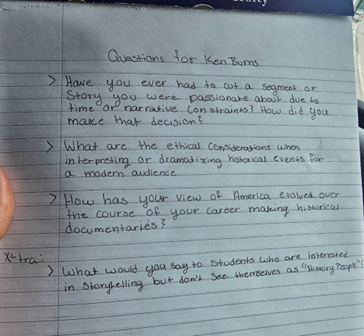 Questions for Ken Burns
> Have you ever had to cut a segment or
Story you were passionate about due to
time or narrative constraints? How did you
make that decision?
> What are the ethical considerations when
interpreting or dramatizing historical events for
a modern audience
> How has your view of America evolved over
the course of your career making historical
documentaries?
X-tra:
> What would you say to students who are interested
in storytelling but don't see themselves as "History People"?